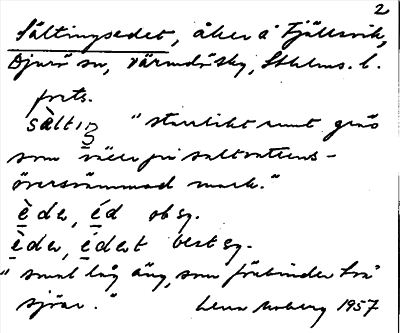 2
Sältingsedet, åker å Fjällsvik,
Djurö sn, Värmdö skg, Sthlms. l.
forts.
sàltiŋ "starrlikt runt gräs
som växer på saltvattens-
översvämmad mark."
èder, éd obsg.
èder, édert best sg.
" smal låg äng, som förbinder två
sjöar." Lena Moberg 1957